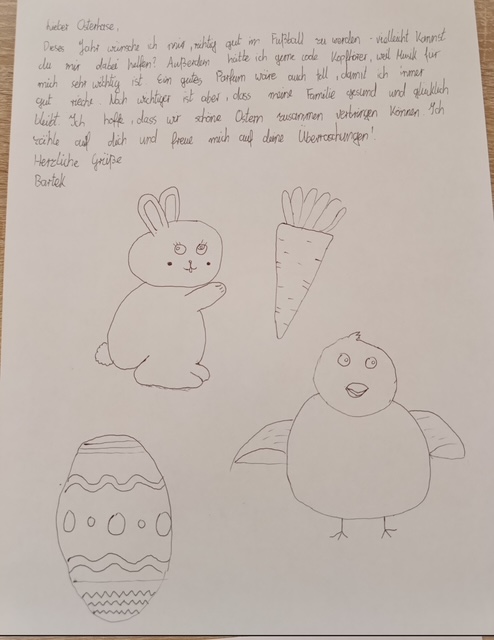 Lieber Osterhase,
Dieses Jahr wünsche ich mir, richtig gut im Fußball zu werden - vielleicht kannst
du mir dabei helfen? Außerdem hätte ich gerne coole Kopfhörer, weil Musik für
mich sehr wichtig ist. Ein gutes Parfum wäre auch toll, damit ich immer
gut rieche. Noch wichtiger ist aber, dass meine Familie gesund und glücklich
bleibt. Ich hoffe, dass wir schöne Ostern zusammen verbringen können. Ich
zähle auf dich und freue mich auf deine Überraschungen!
Herzliche Grüße
Bartek